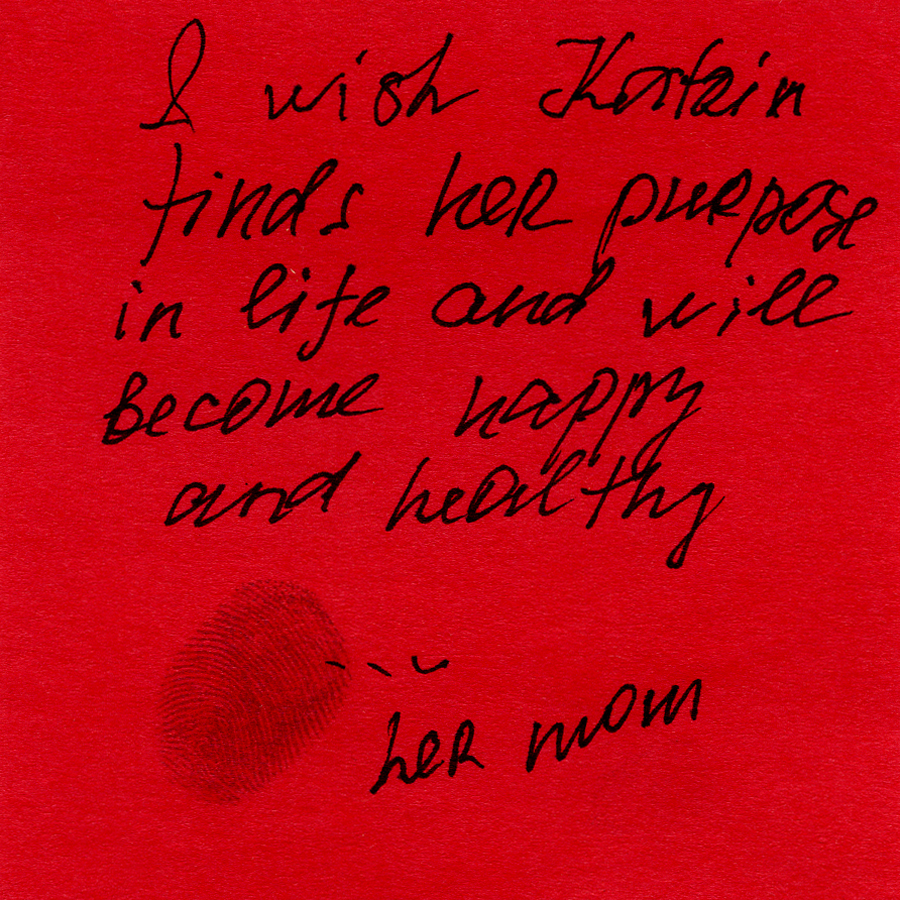 I wish
finds her purpose
in life and will
become happy
and healthy
her mom